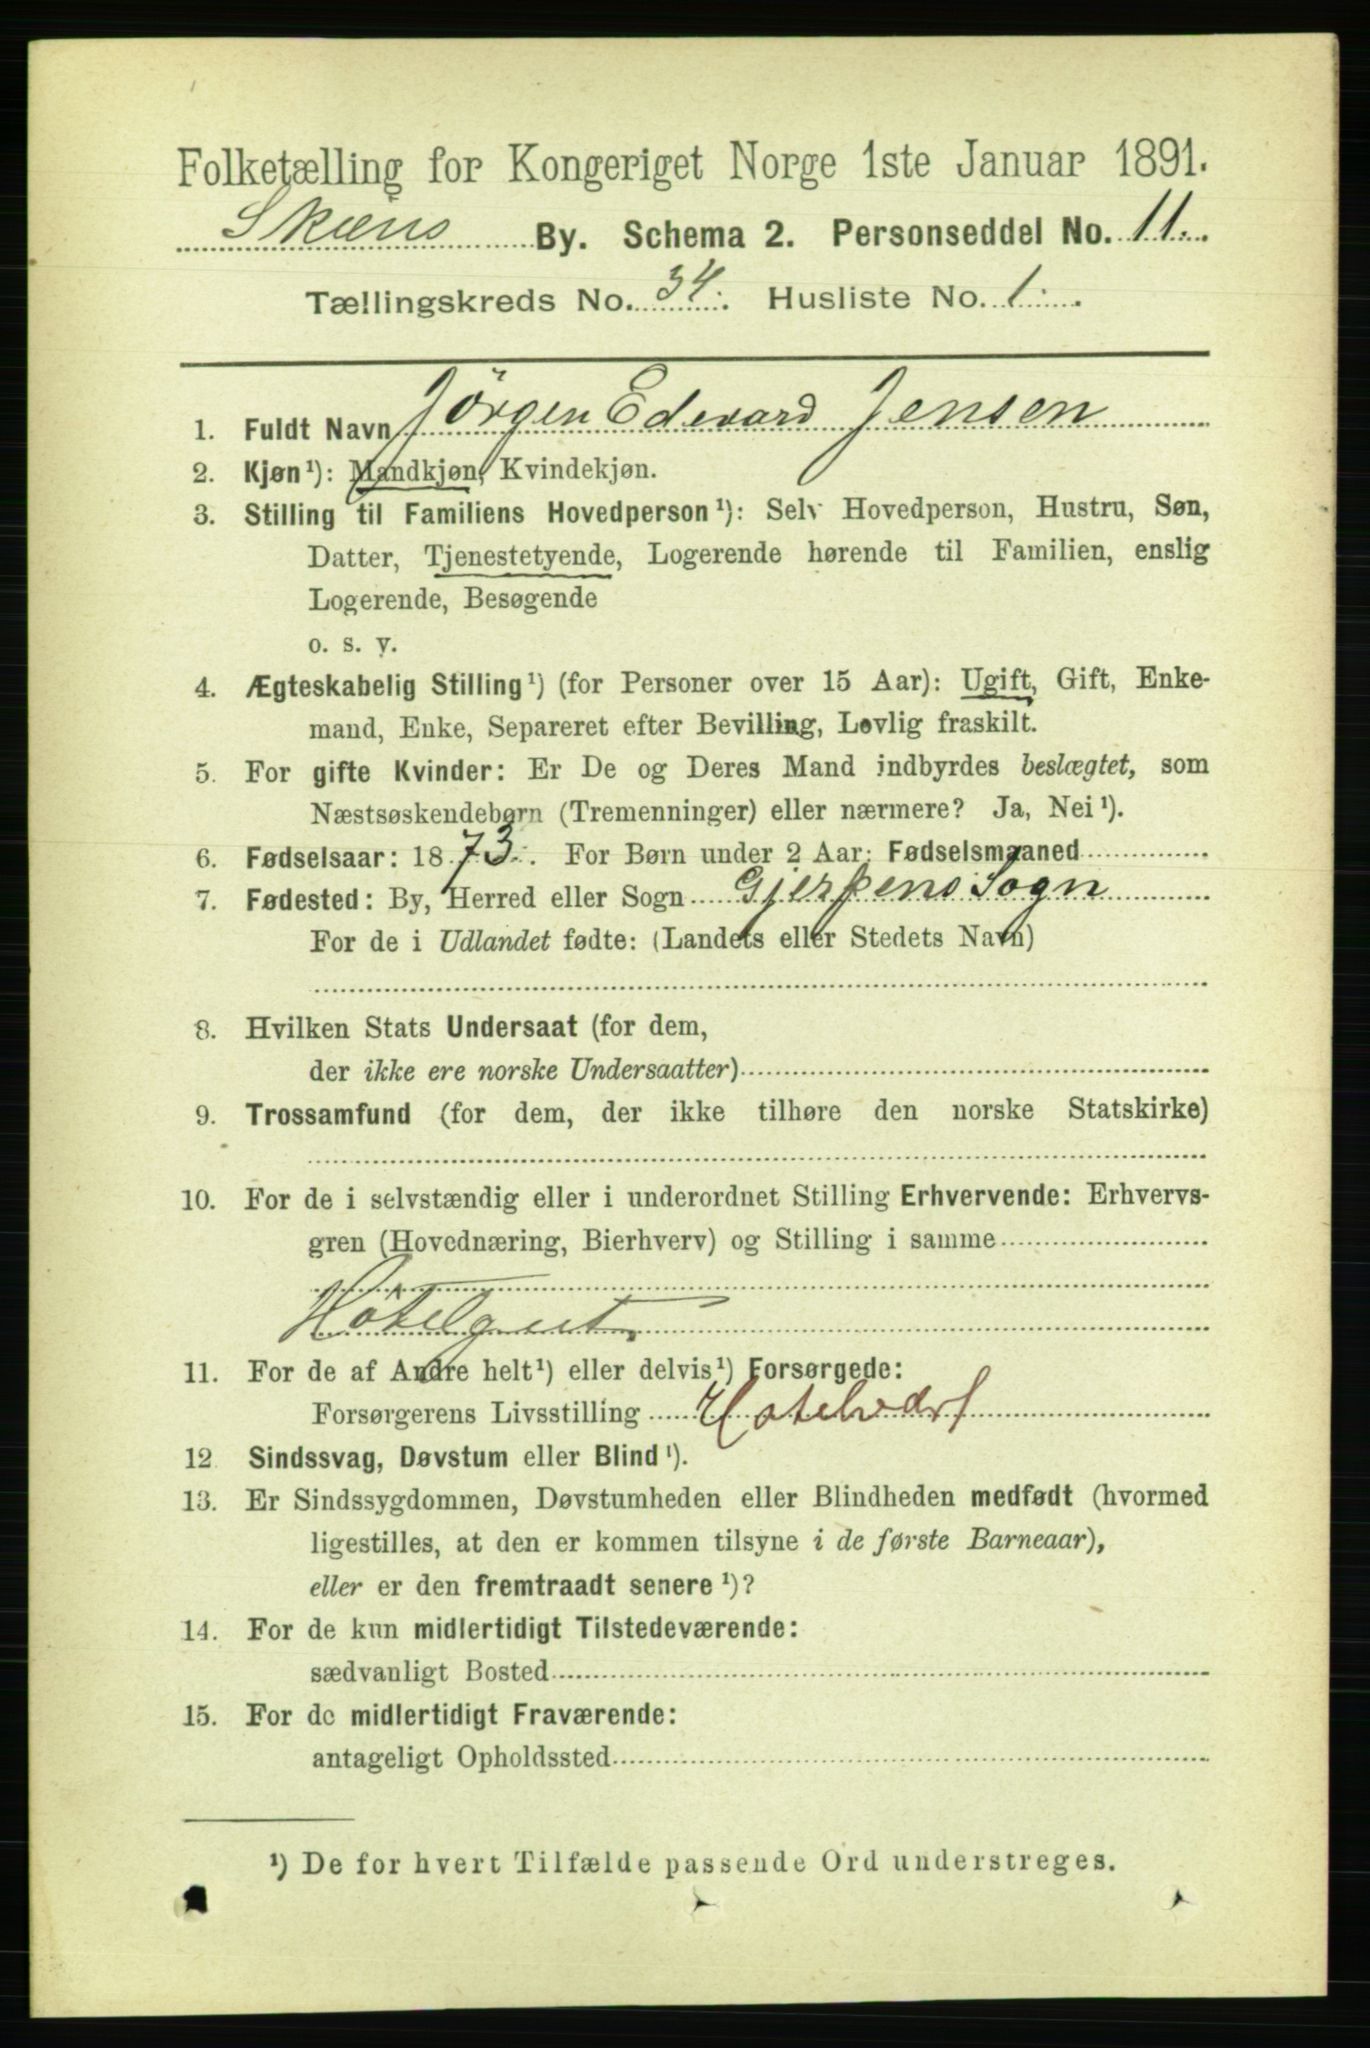 Folketælling for Kongeriget Norge 1ste Januar 1891.
Skiens By. Schema 2. Personseddel No. 11.
Tællingskreds No. 34. Husliste No. 1.
1. Fuldt Navn Jörgen Edevard Jensen
2. Kjøn¹): Mandkjøn, Kvindekjøn.
3. Stilling til Familiens Hovedperson¹): Selv Hovedperson, Hustru, Søn,
Datter, Tjenestetyende, Logerende hørende til Familien, enslig
Logerende, Besøgende
o. s. v.
4. Ægteskabelig Stilling¹) (for Personer over 15 Aar): Ugift, Gift, Enke-
mand, Enke, Separeret efter Bevilling, Lovlig fraskilt.
5. For gifte Kvinder: Er De og Deres Mand indbyrdes beslægtet, som
Næstsøskendebørn (Tremenninger) eller nærmere? Ja, Nei¹).
6. Fødselsaar: 1873. For Børn under 2 Aar: Fødselsmaaned
7. Fødested: By, Herred eller Sogn Gjerpens Sogn
For de i Udlandet fødte: (Landets eller Stedets Navn)
8. Hvilken Stats Undersaat (for dem,
der ikke ere norske Undersaatter)
9. Trossamfund (for dem, der ikke tilhøre den norske Statskirke)
10. For de i selvstændig eller i underordnet Stilling Erhvervende: Erhvervs-
gren (Hovednæring, Bierhverv) og Stilling i samme
Hotelgut
11. For de af Andre helt¹) eller delvis¹) Forsørgede:
Forsørgerens Livsstilling Hotelvært
12 Sindssvag, Døvstum eller Blind¹).
13. Er Sindssygdommen, Døvstumheden eller Blindheden medfødt (hvormed
ligestilles, at den er kommen tilsyne i de første Barneaar),
eller er den fremtraadt senere¹)?
14. For de kun midlertidigt Tilstedeværende:
sædvanligt Bosted
15. For de midlertidigt Fraværende:
antageligt Opholdssted
¹) De for hvert Tilfælde passende Ord understreges.